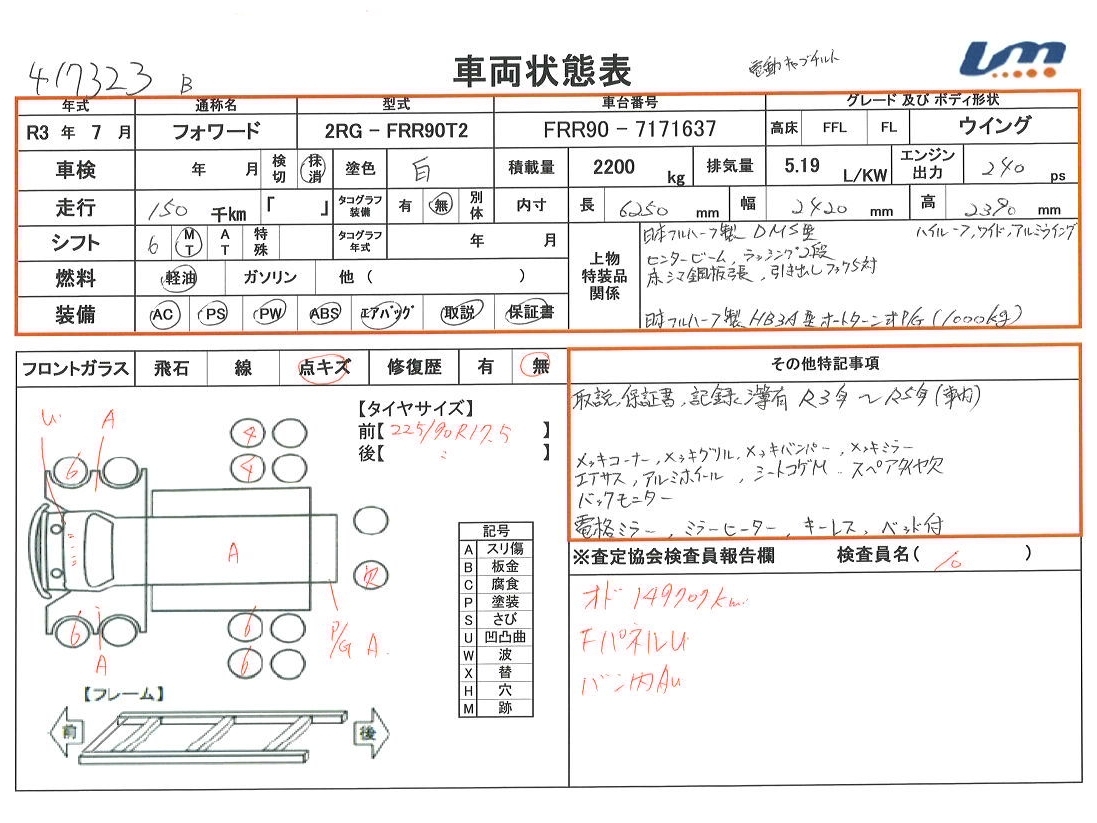 417323 B
車両状態表
電動キャブチルト
UM
年式 通称名 型式 車台番号 グレード 及び ボディ形状
R3 年 7 月 フォワード 2RG - FRR90T2 FRR90 - 7171637 高床 FFL FL ウイング
車検 年 月 検切 抹消 塗色 白 積載量 2200 kg 排気量 5.19 L/KW エンジン出力 240 ps
走行 150 千km 「 」 タコグラフ装備 有 無 別体 内寸 長 6250 mm 幅 2420 mm 高 2390 mm
シフト 6 MT AT 特殊 タコグラフ年式 年 月
燃料 軽油 ガソリン 他 ( )
装備 AC PS PW ABS エアバッグ 取説 保証書
上物特装品関係
日本フルハーフ製 DMS型 ハイルーフ,ワイド,アルミウイング
センタービーム,ラッシング2段
床シマ鋼板張,引き出しフック5対
日本フルハーフ製 HB3A型オートターン式P/G (1000kg)
フロントガラス 飛石 線 点キズ 修復歴 有 無
その他特記事項
取説,保証書,記録簿有 R3年〜R5年(車内)
メッキコーナー,メッキグリル,メッキバンパー,メッキミラー
エアサス,アルミホイール,シートコゲM スペアタイヤ欠
バックモニター
電格ミラー,ミラーヒーター,キーレス,ベッド付
【タイヤサイズ】
前【 225/90R17.5 】
後【 : 】
U A
4
4
6
A
欠
6
6
6
A
P/G A.
記号
A スリ傷
B 板金
C 腐食
P 塗装
S さび
U 凹凸曲
W 波
X 替
H 穴
M 跡
【フレーム】
前 後
※査定協会検査員報告欄 検査員名( 10 )
オド 149707km
FパネルU
バン内AU